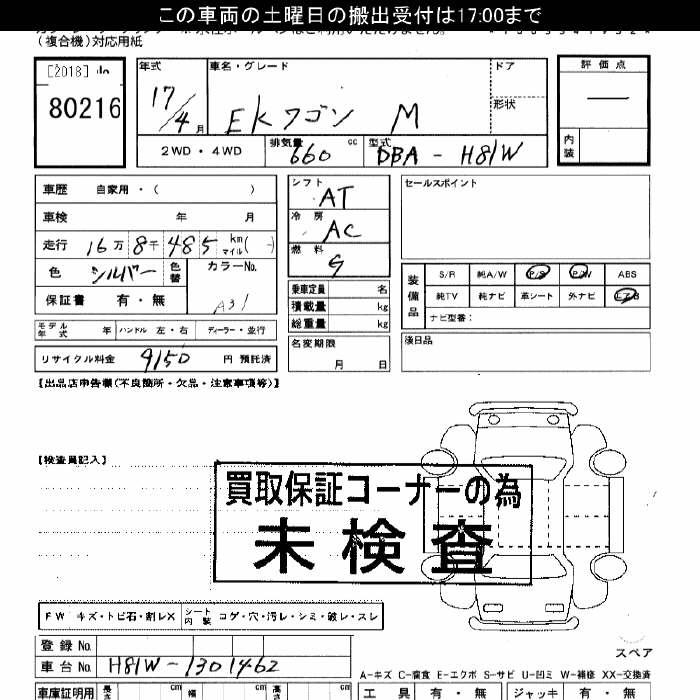 この車両の土曜日の搬出受付は17:00まで
(複合機)対応用紙
[2018]
80216
年式 車名・グレード ドア 評価点
17/4月 EKワゴン M 形状 —
2WD・4WD 排気量 660 cc 型式 DBA - H81W 内装
車歴 自家用・( )
車検 年 月
走行 16万8千485 km マイル( - )
色 シルバー 色替 カラーNo. A31
保証書 有・無
モデル年式 年 ハンドル 左・右 ディーラー・並行
リサイクル料金 9150 円 預託済
シフト AT
冷房 AC
燃料 G
乗車定員 名
積載量 kg
総重量 kg
名変期限
月 日
セールスポイント
装備品 S/R 純A/W P/S P/W ABS
純TV 純ナビ 革シート 外ナビ エアB
ナビ型番:
後日品
【出品店申告欄(不良箇所・欠品・注意事項等)】
【検査員記入】
買取保証コーナーの為
未検査
FW キズ・トビ石・割レX シート内装 コゲ・穴・汚レ・シミ・破レ・スレ
登録No.
車台No. H81W-1301462
スペア
A-キズ C-腐食 E-エクボ S-サビ U-凹ミ W-補修 XX-交換済
車庫証明用 長さ cm 幅 cm 高さ cm 工具 有・無 ジャッキ 有・無